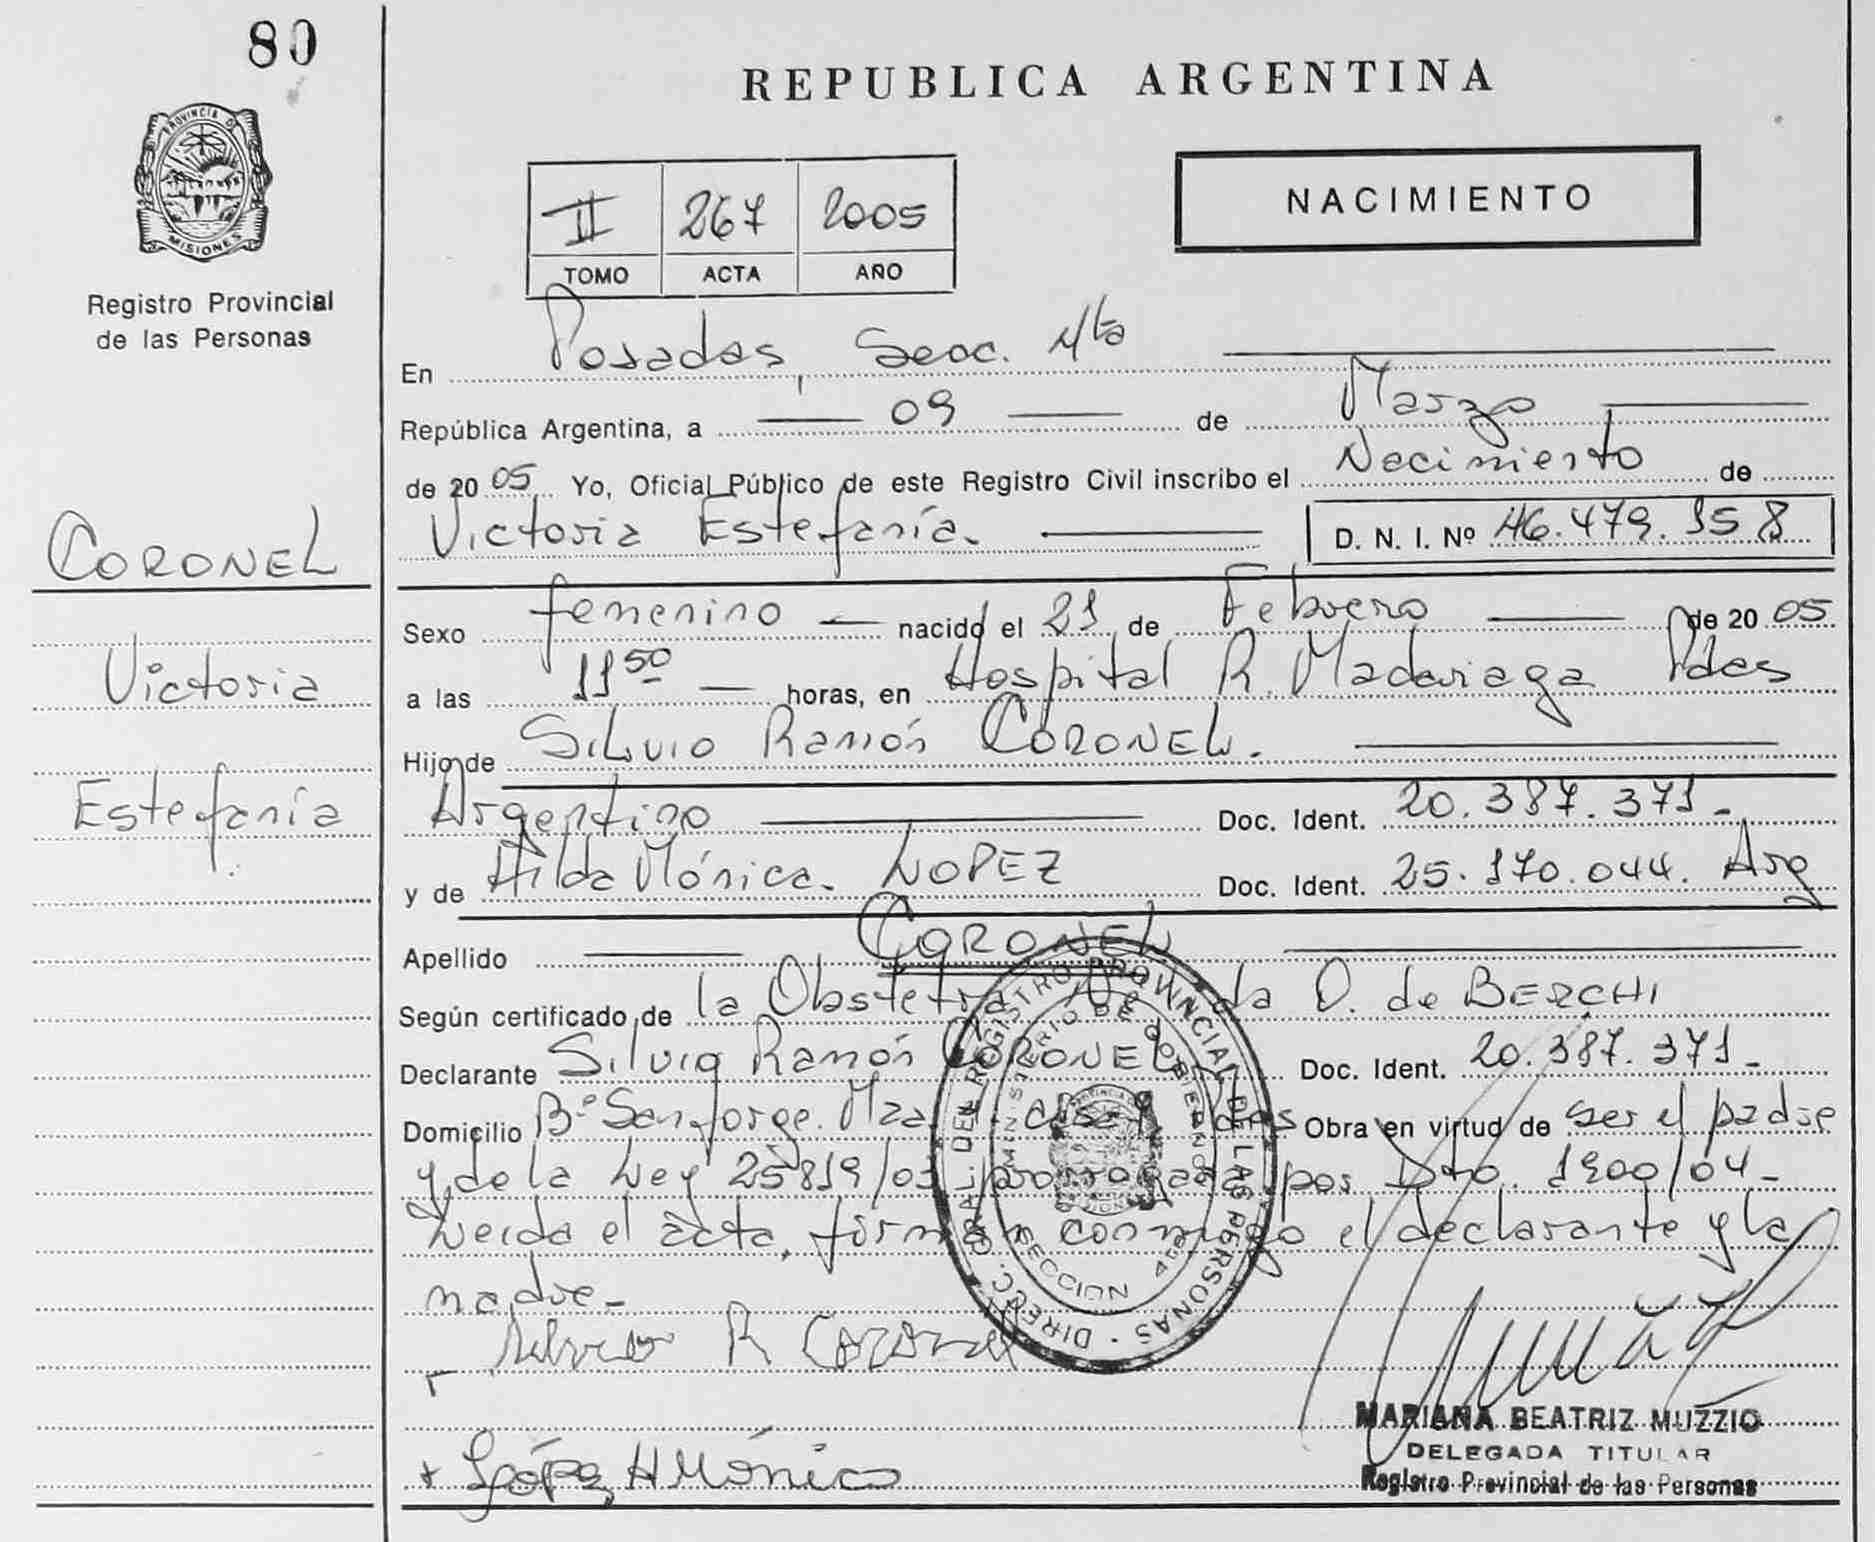 80
PROVINCIA DE
MISIONES
Registro Provincial
de las Personas
CORONEL
Victoria
Estefanía
REPUBLICA ARGENTINA
NACIMIENTO
II 267 2005
TOMO ACTA AÑO
En Posadas, Secc. 4ta
República Argentina, a 09 de Marzo
de 2005 Yo, Oficial Público de este Registro Civil inscribo el Nacimiento de
Victoria Estefanía. D. N. I. Nº 46.479.358
Sexo femenino nacido el 21 de Febrero de 2005
a las 11 50 horas, en Hospital R. Madariaga Pdas
Hijo de Silvio Ramón CORONEL.
Argentino Doc. Ident. 20.387.371-
y de Hilda Mónica. LOPEZ Doc. Ident. 25.170.044. Arg
Apellido CORONEL
Según certificado de la Obstetra da O. de BERCHI
Declarante Silvio Ramón CORONEL Doc. Ident. 20.387.371-
Domicilio Bº San Jorge. Obra en virtud de ser el padre
y de la Ley 25819/03 prorrogada por Dto. 1900/04-
Leida el acta, firman conmigo el declarante y la
madre-
R Coronel
López H Mónica
DIRECC. GRAL. DEL REGISTRO PROVINCIAL DE LAS PERSONAS
MINISTERIO DE GOBIERNO
SECCION 4ta
MARIANA BEATRIZ MUZZIO
DELEGADA TITULAR
Registro Provincial de las Personas